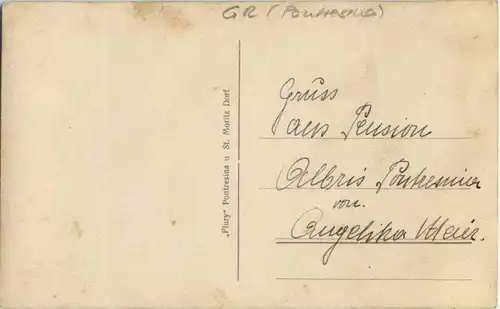 GR (Pontresina)
Gruss
aus Pension
Albris Pontresina
von.
Angelika Meier.
"Flury" Pontresina u St. Moritz Dorf